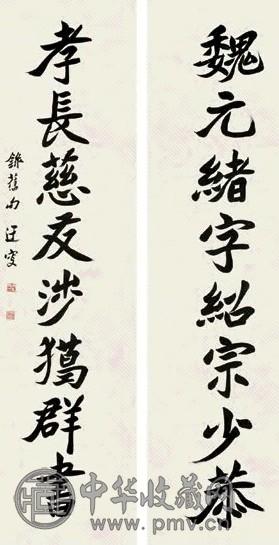 魏元緒字紹宗少恭
孝長慈友涉獦群書
錄舊句
中华收藏网
www.pmv.cn